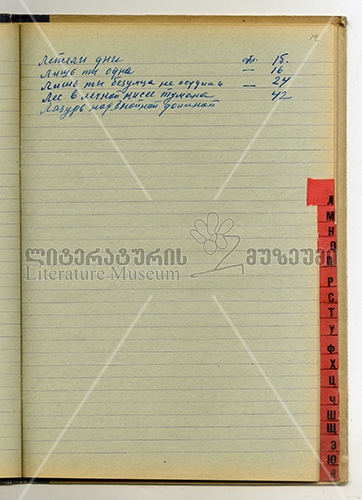 Летели дни стр. 15.
Лишь ты одна — 16
Лишь ты безумца не осудишь — 24
Лес в легкой массе тумана 42
Лазурь над знойной долиной
ლიტერატურის მუზეუმი
Literature Museum
Л
М
Н
О
П
Р
С
Т
У
Ф
Х
Ц
Ч
Ш
Щ
Э
Ю
Я